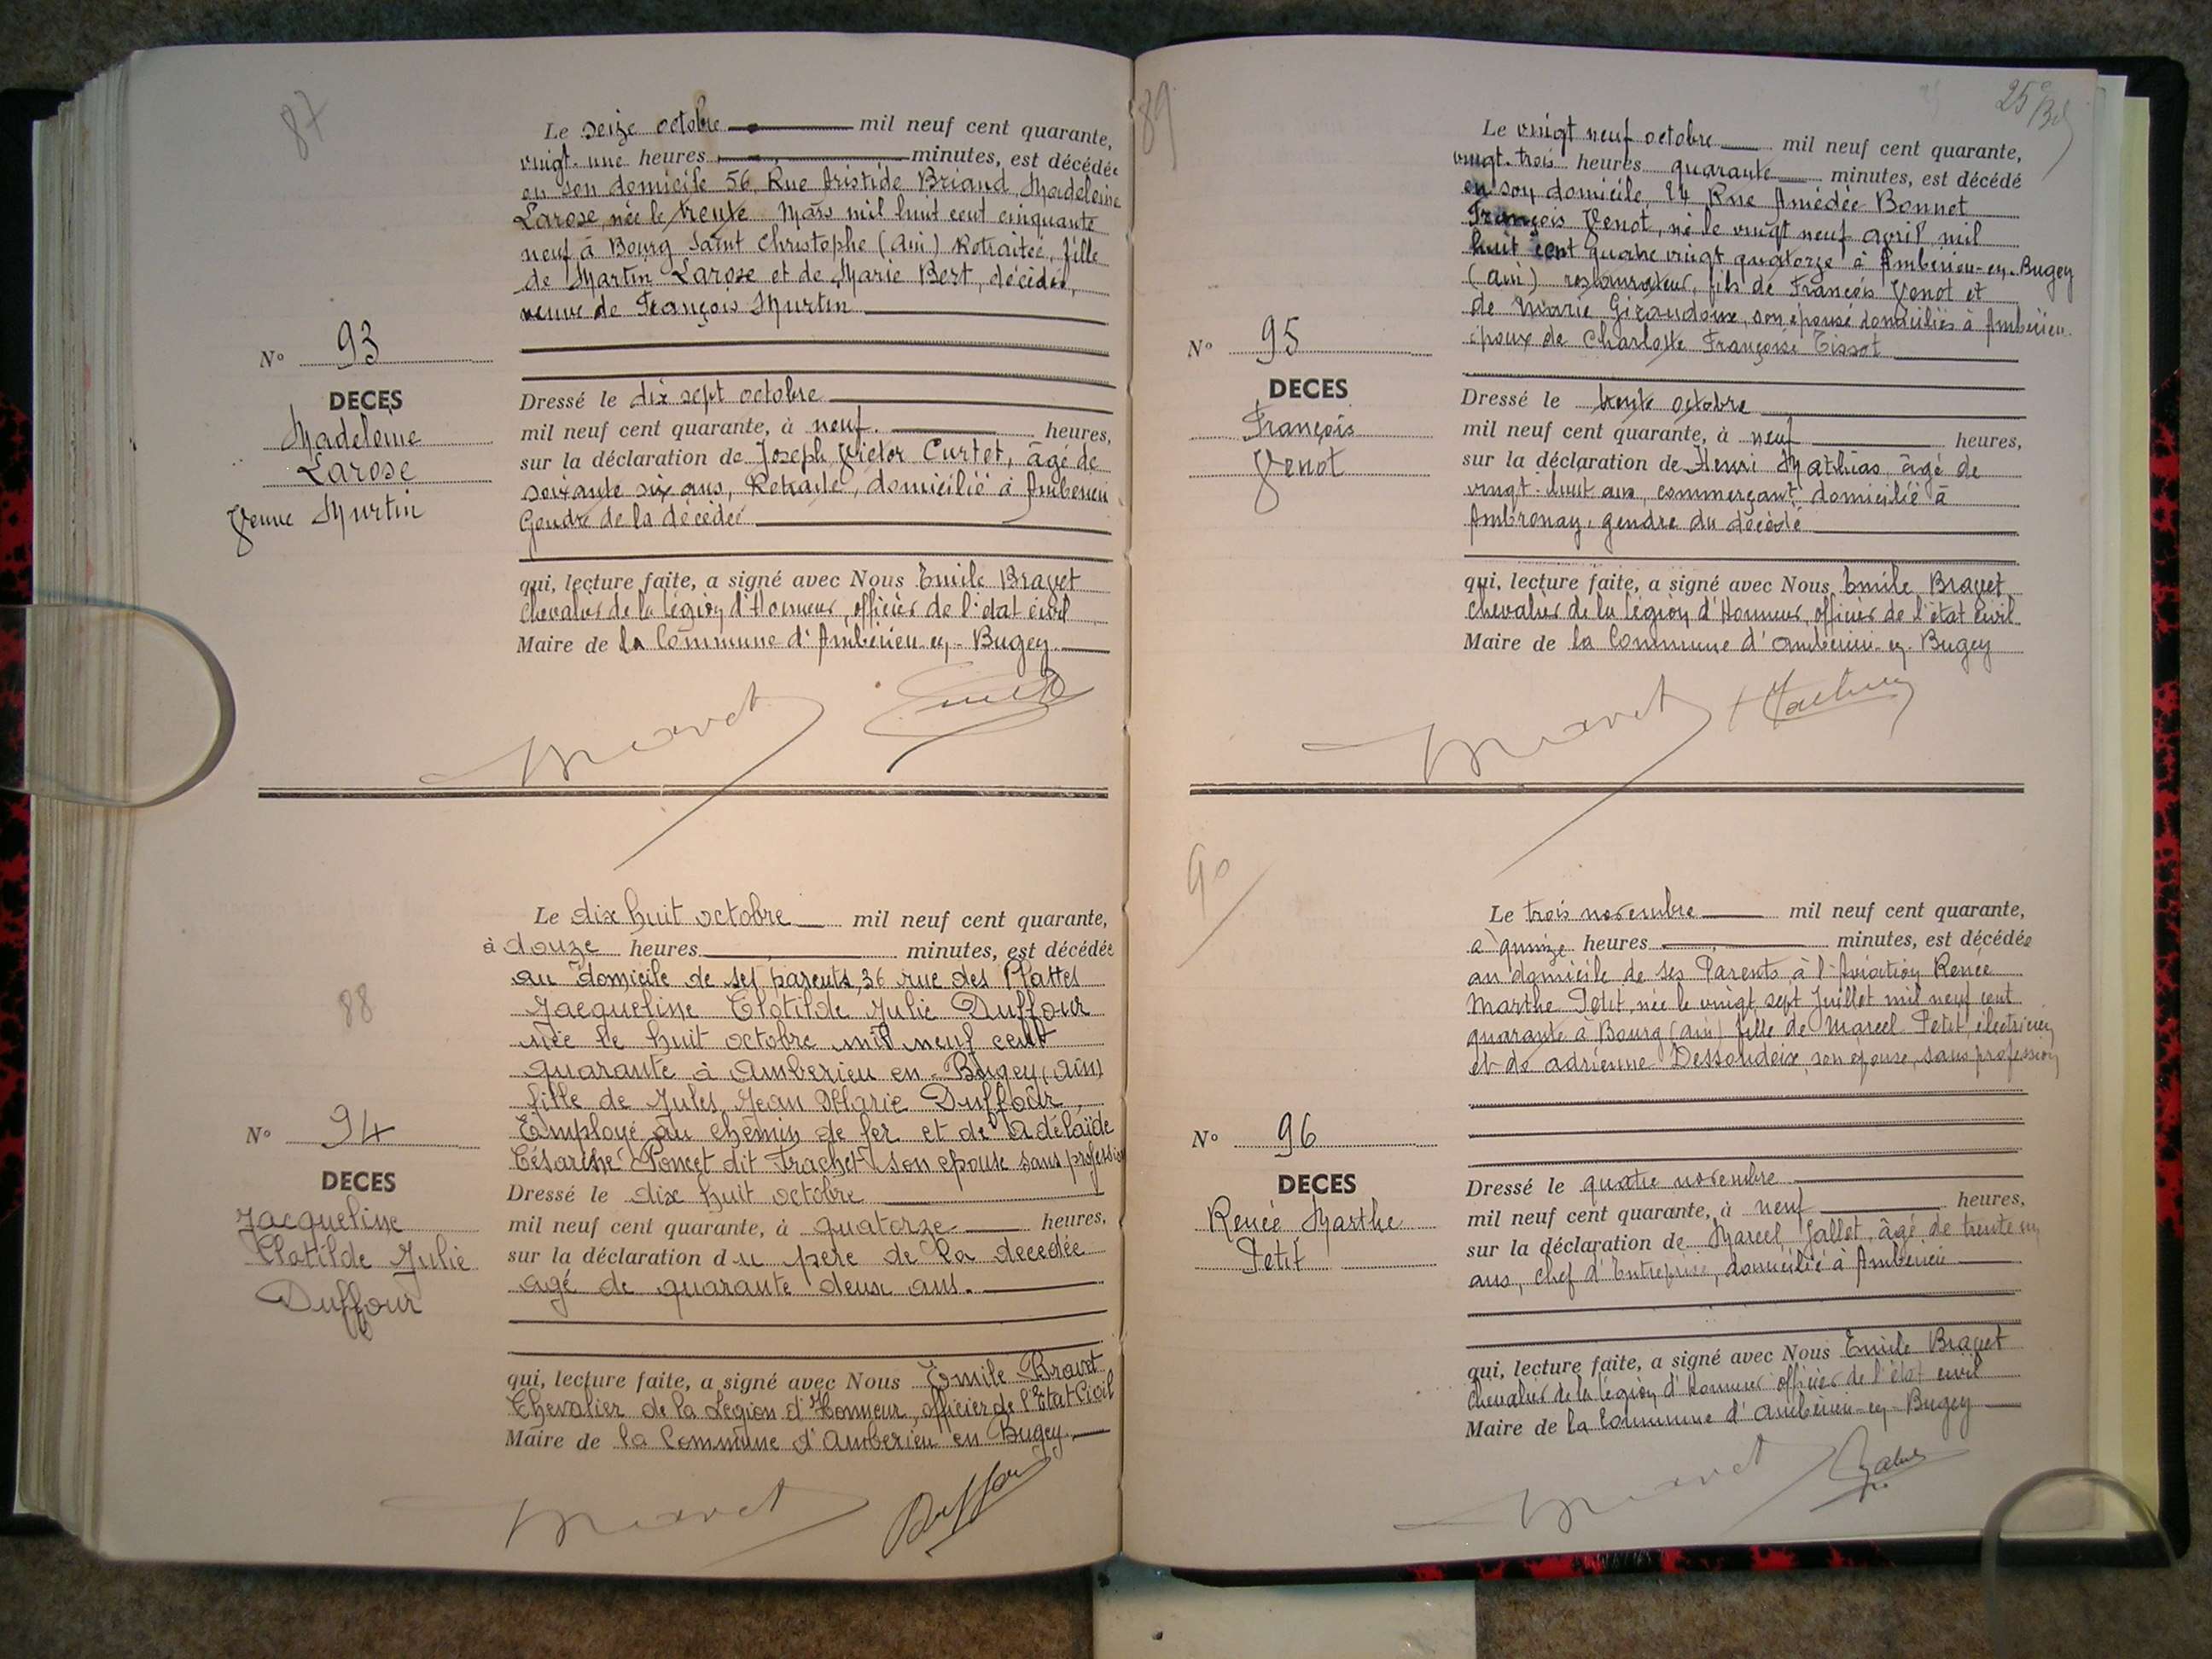 87
Le seize octobre mil neuf cent quarante,
vingt-une heures minutes, est décédée
en son domicile 56, Rue Aristide Briand, Madeleine
Larose, née le trente Mars mil huit cent cinquante
neuf à Bourg Saint Christophe (Ain) Retraitée, fille
de Martin Larose et de Marie Bert, décédés,
veuve de François Murtin
N° 93
DECES
Madeleine
Larose
Veuve Murtin
Dressé le dix sept octobre
mil neuf cent quarante, à neuf. heures,
sur la déclaration de Joseph Victor Curtet, âgé de
soixante six ans, Retraité, domicilié à Ambérieu
Gendre de la décédée
qui, lecture faite, a signé avec Nous Emile Bravet
Chevalier de la Légion d'Honneur, officier de l'état civil
Maire de la Commune d'Ambérieu-en-Bugey.
Bravet
88
Le dix huit octobre mil neuf cent quarante,
à douze heures minutes, est décédée
au domicile de ses parents, 36 rue des Plattes
Jacqueline Clotilde Julie Duffour
née le huit octobre mil neuf cent
quarante à Amberieu en-Bugey (Ain)
fille de Jules Jean Marie Duffour,
Employé au chemin de fer et de Adélaïde
Césarine Poncet dit Frachet son epouse sans profession
N° 94
DECES
Jacqueline
Clotilde Julie
Duffour
Dressé le dix huit octobre
mil neuf cent quarante, à quatorze heures,
sur la déclaration du père de la decedée
agé de quarante deux ans.
qui, lecture faite, a signé avec Nous Emile Bravet
Chevalier de la Légion d'Honneur, officier de l'Etat Civil
Maire de la Commune d'Amberieu en Bugey
Bravet Duffour
89
25
Le vingt neuf octobre mil neuf cent quarante,
vingt-trois heures quarante minutes, est décédé
en son domicile, 24 Rue Amédée Bonnet
François Venot, né le vingt neuf avril mil
huit cent quatre vingt quatorze à Ambérieu-en-Bugey
(Ain) restaurateur, fils de François Venot et
de Marie Giraudoux, son épouse domiciliés à Ambérieu.
époux de Charlotte Françoise Tissot
N° 95
DECES
François
Venot
Dressé le trente octobre
mil neuf cent quarante, à neuf heures,
sur la déclaration de Henri Mathias, âgé de
vingt-huit ans, commerçant domicilié à
Ambronay, gendre du décédé
qui, lecture faite, a signé avec Nous Emile Bravet
Chevalier de la Légion d'Honneur, officier de l'état civil
Maire de la Commune d'Ambérieu-en-Bugey
Bravet
90
Le trois novembre mil neuf cent quarante,
à quinze heures minutes, est décédée
au domicile de ses Parents à l'Aviation Renée
Marthe Petit, née le vingt sept Juillet mil neuf cent
quarante à Bourg (Ain) fille de Marcel Petit, électricien
et de Adrienne Dessoudeix, son épouse, sans profession
N° 96
DECES
Renée Marthe
Petit
Dressé le quatre novembre
mil neuf cent quarante, à neuf heures,
sur la déclaration de Marcel Jallet, âgé de trente un
ans, Chef d'Entreprise, domicilié à Ambérieu
qui, lecture faite, a signé avec Nous Emile Bravet
Chevalier de la Légion d'Honneur officier de l'état civil
Maire de la Commune d'Ambérieu-en-Bugey
Bravet